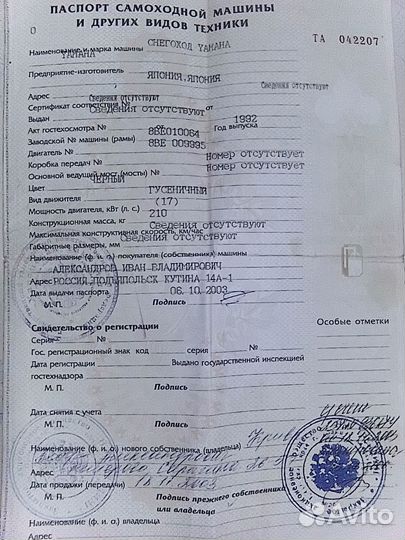 ПАСПОРТ САМОХОДНОЙ МАШИНЫ
И ДРУГИХ ВИДОВ ТЕХНИКИ
ТА 042207
Наименование и марка машины СНЕГОХОД YAMAHA
YAMAHA
Предприятие-изготовитель ЯПОНИЯ, ЯПОНИЯ
Адрес Сведения отсутствуют Сведения отсутствуют
Сертификат соответствия №
Сведения отсутствуют
Выдан 1992
Акт гостехосмотра № от Год выпуска
8BE010064
Заводской № машины (рамы) 8BE 009995
Двигатель №
Номер отсутствует
Коробка передач №
Номер отсутствует
Основной ведущий мост (мосты) №
ЧЕРНЫЙ
Цвет
ГУСЕНИЧНЫЙ
Вид движителя (17)
Мощность двигателя, кВт (л. с.)
210
Конструкционная масса, кг
Сведения отсутствуют
Максимальная конструктивная скорость, км/час
Сведения отсутствуют
Габаритные размеры, мм
Наименование (ф. и. о.) покупателя (собственника) машины
АЛЕКСАНДРОВ ИВАН ВЛАДИМИРОВИЧ
Адрес РОССИЯ,
КУТИНА 14А-1
Дата выдачи паспорта 06.10.2003
М. П. Подпись
Свидетельство о регистрации Особые отметки
Серия №
Гос. регистрационный знак код серия №
Дата регистрации Выдано государственной инспекцией
гостехнадзора
М. П. Подпись
Дата снятия с учета
М. П. Подпись
Наименование (ф. и. о.) нового собственника (владельца)
Адрес
Дата продажи (передачи)
М. П. Подпись прежнего собственника
или владельца
Наименование (ф. и. о.) владельца
Адрес
Avito